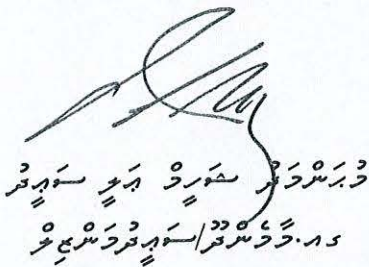 މުޙައްމަދު ޝަހީމް ޢަލީ ސަޢީދު
ގއ.މާމެންދޫ/ސަޢީދުމަންޒިލް